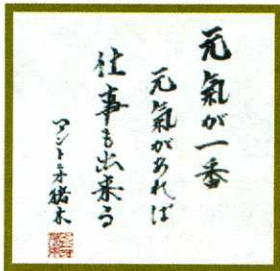 元氣が一番
元氣があれば
仕事も出来る
アントニオ猪木